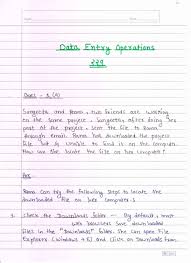 Data Entry Operations
229
Ques - 1 (A)
Sangeeta and Rama, two friends are working
on the same project. Sangeeta after doing her
part of the project, sent the file to Rama
through email. Rama has downloaded the project
file but is unable to find it on the computer.
How can she locate the file on her computer?
Ans:
Rama can try the following steps to locate the
downloaded file on her computer:
1. Check the "Downloads folder" - By default, most
web browsers save downloaded
files in the "Downloads" folder. She can open File
Explorer (Windows + E) and click on Downloads from